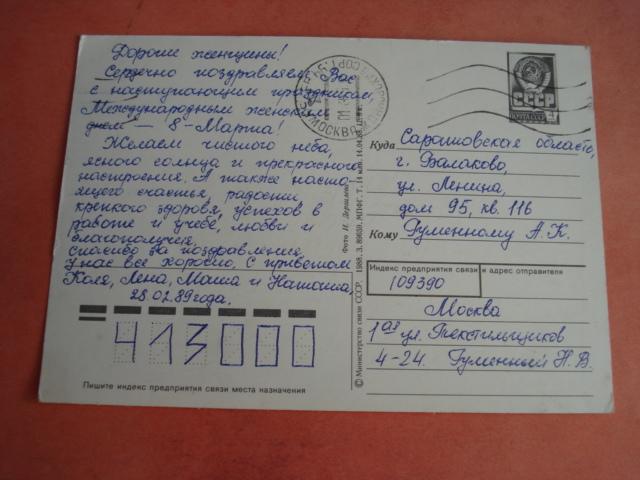 Дорогие женщины!
Сердечно поздравляем Вас
с наступающим праздником,
Международным женским
днём — 8-Марта!
Желаем чистого неба,
ясного солнца и прекрасного
настроения. А также насто-
ящего счастья, радости,
крепкого здоровья, успехов в
работе и учебе, любви и
благополучия.
Спасибо за поздравления,
у нас все хорошо. С приветом
Коля, Лена, Маша и Наташа,
28.02.89 года.
413000
Пишите индекс предприятия связи места назначения
МОСКВА
Фото И. Дергилёва
© Министерство связи СССР. 1988. З. 89659. МПФГ.
ПОЧТА СССР
СССР
4
Куда Саратовская область,
г. Балаково,
ул. Ленина,
дом 95, кв. 116
Кому Гуменному А.К.
Индекс предприятия связи и адрес отправителя
109390
Москва
1ая ул. Текстильщиков
4-24. Гуменный Н.В.